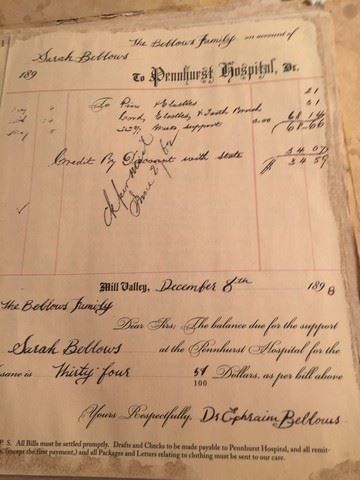 The Bellows Family on account of
Sarah Bellows
189
To Pennhurst Hospital, Dr.
To Pins & Elastics 21
Comb, Elastics, & Tooth Brush 31
support 2.00 68.14
68.66
Credit By Account with state 34.07
34.59
Mill Valley, December 8th 1898
The Bellows Family
Dear Sirs; The balance due for the support
Sarah Bellows at the Pennhurst Hospital for the
sane is Thirty four 59/100 Dollars, as per bill above
Yours Respectfully, Dr Ephraim Bellows
P. S. All Bills must be settled promptly. Drafts and Checks to be made payable to Pennhurst Hospital, and all remit-
(except the first payment,) and all Packages and Letters relating to clothing must be sent to our care.